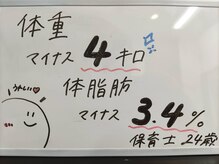 体重
マイナス 4キロ
体脂肪
マイナス 3.4%
うれしい♡
保育士 24歳